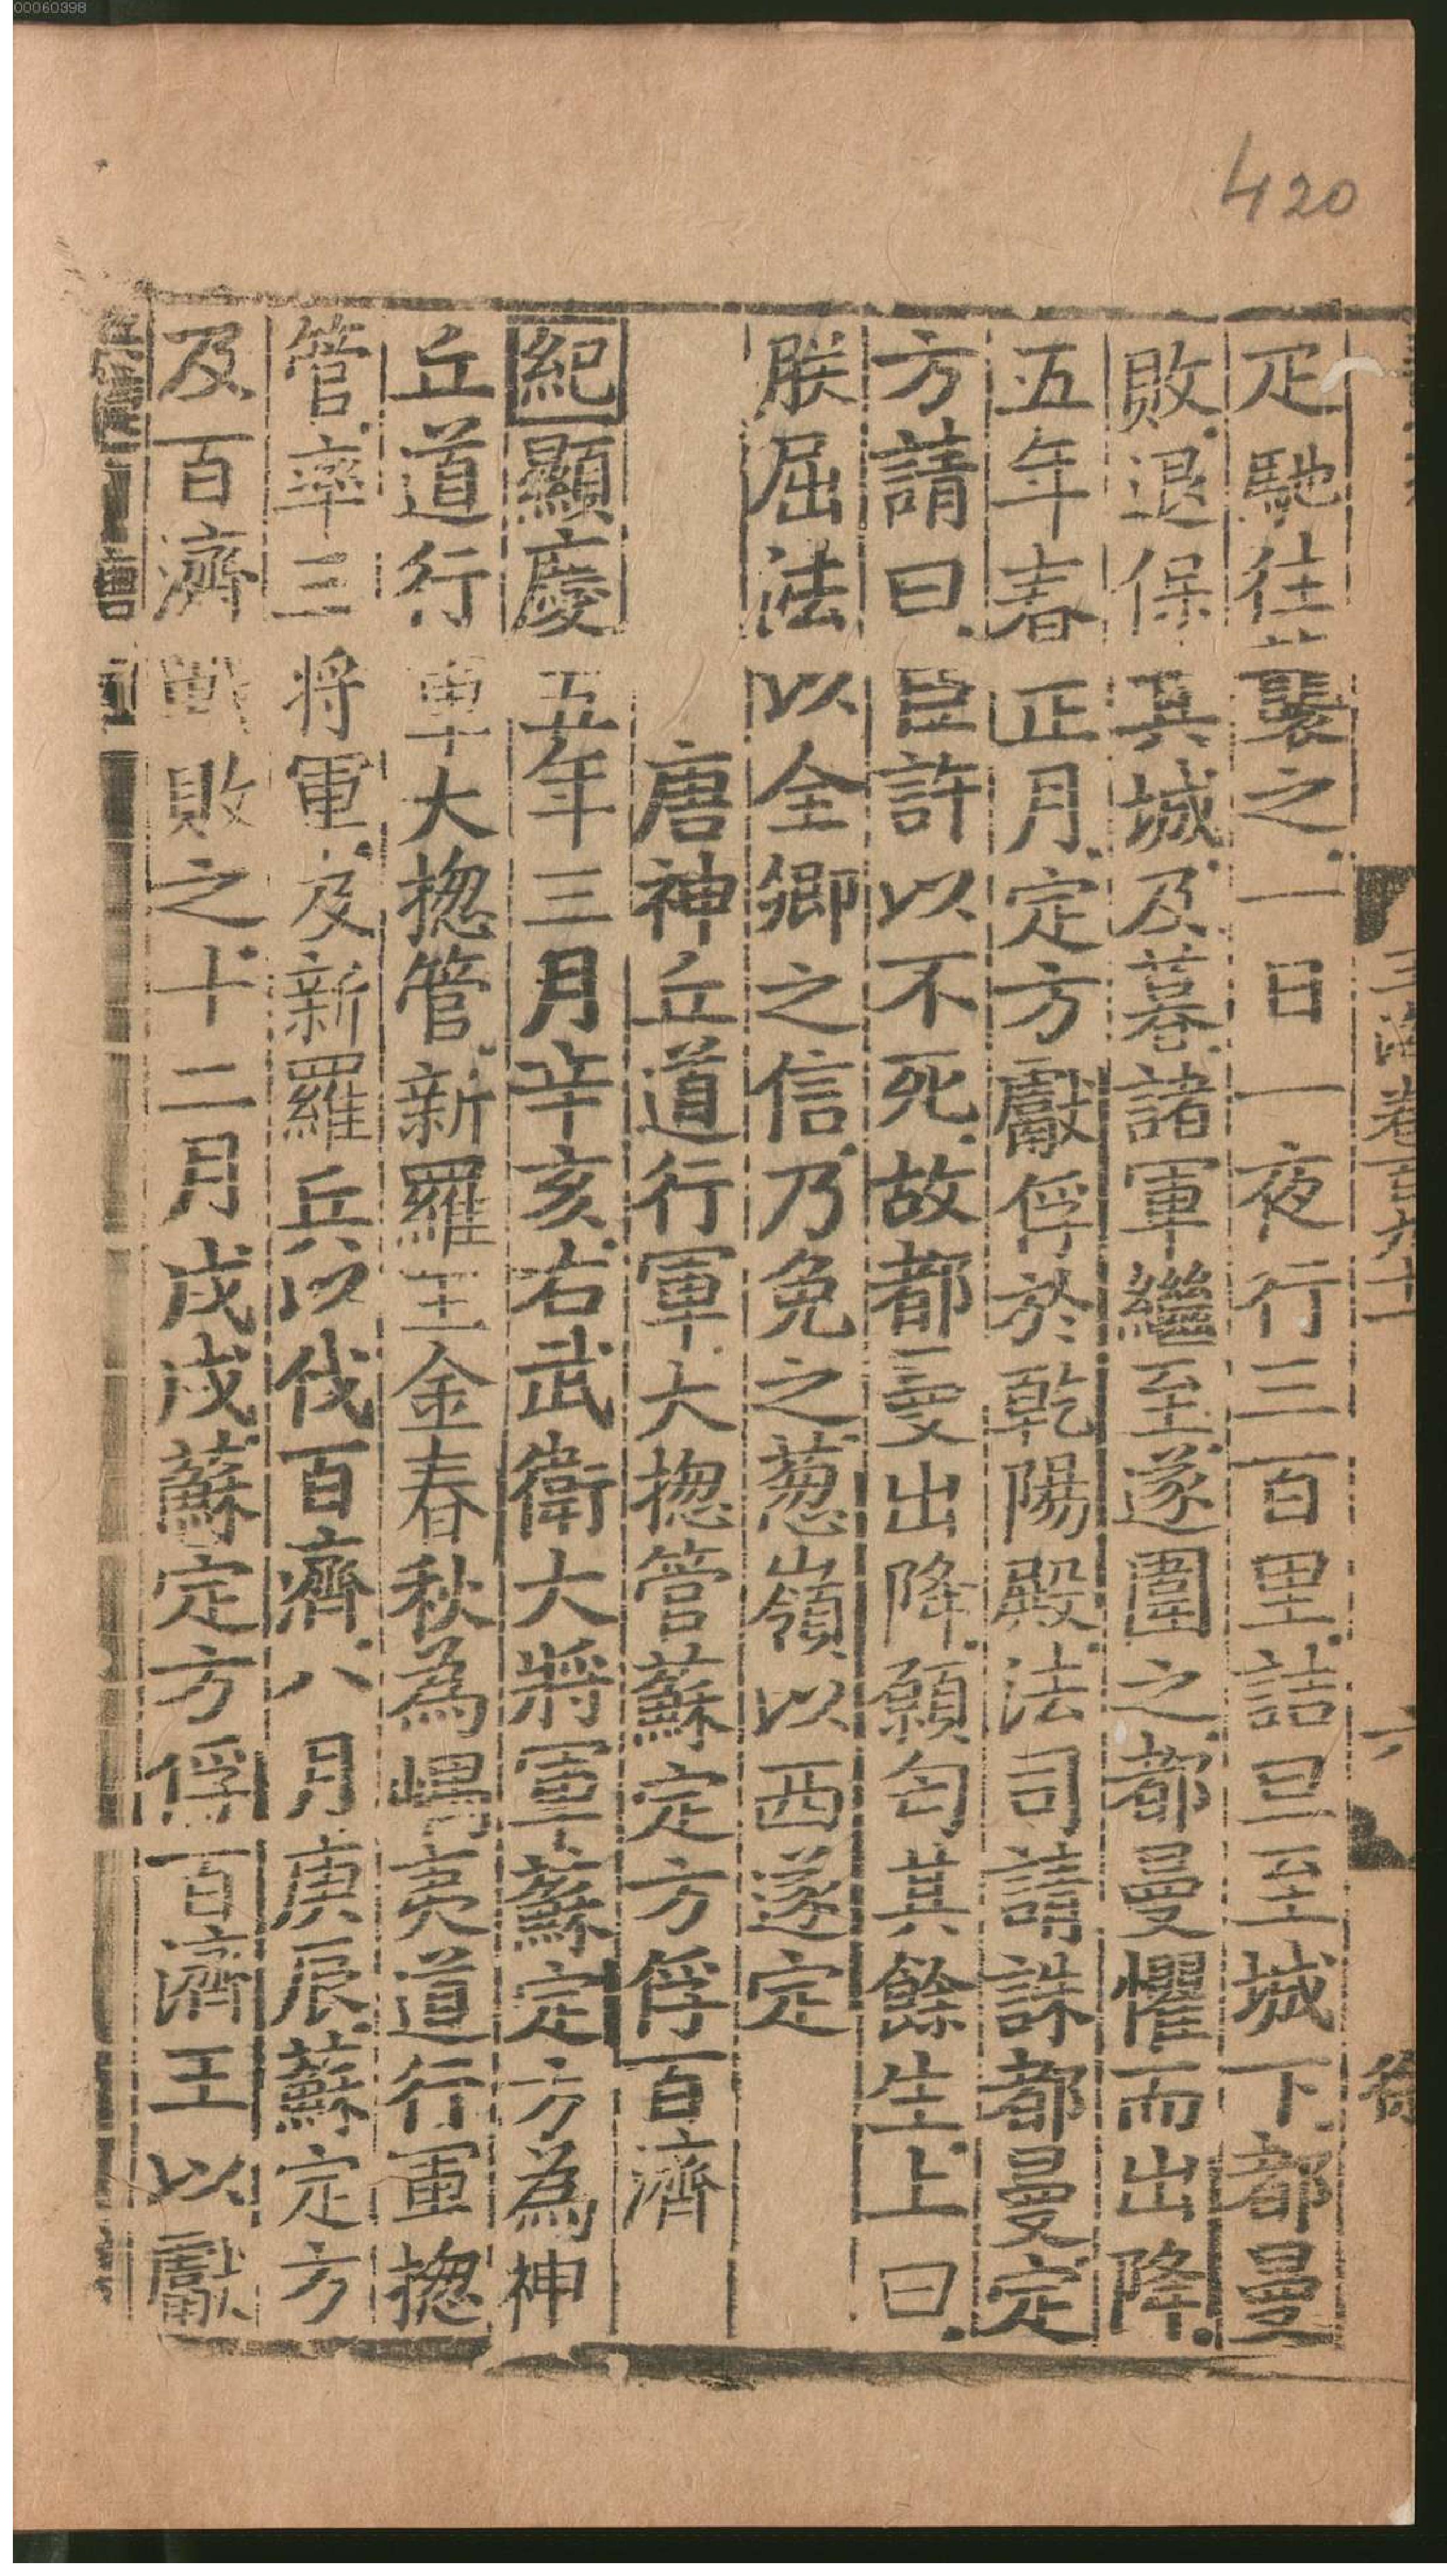 00060398
420
玉海卷百九十一
六
疋馳往襲之一日一夜行三百里詰旦至城下都曼
敗退保其城及暮諸軍繼至遂圍之都曼懼而出降
五年春正月定方獻俘於乾陽殿法司請誅都曼定
方請曰臣許以不死故都曼出降願匄其餘生上曰
朕屈法以全卿之信乃免之葱嶺以西遂定
唐神丘道行軍大揔管蘇定方俘百濟
紀顯慶五年三月辛亥右武衛大將軍蘇定方為神
丘道行軍大揔管新羅王金春秋為嵎夷道行軍揔
管率三將軍及新羅兵以伐百濟八月庚辰蘇定方
及百濟戰敗之十二月戊戌蘇定方俘百濟王以獻